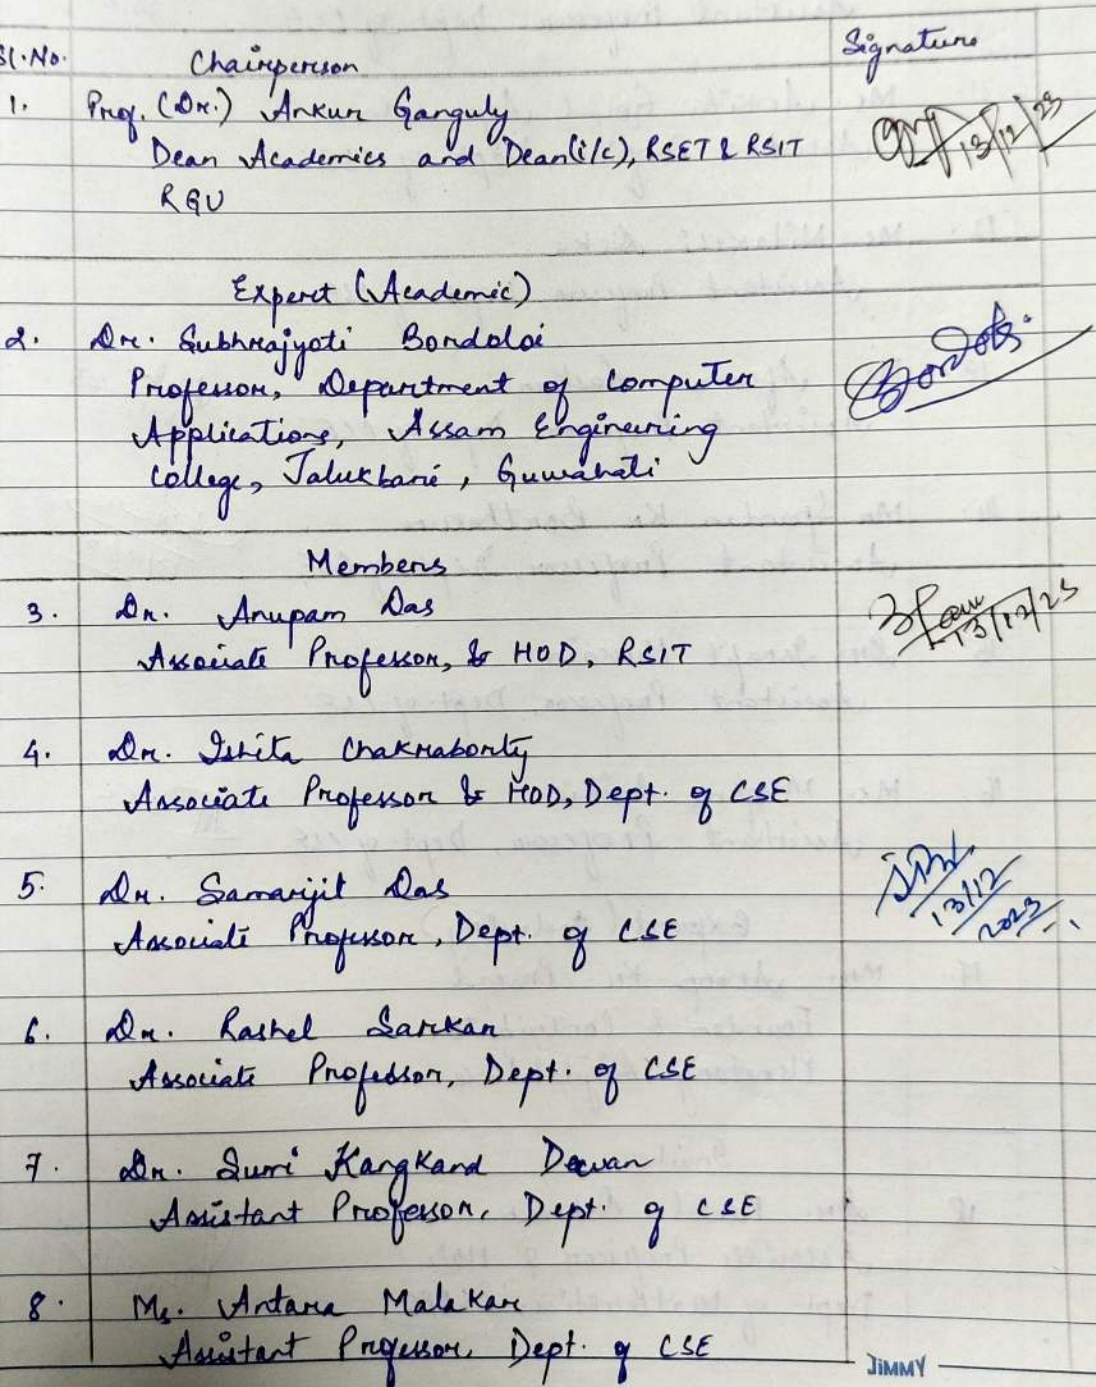 Sl.No. Chairperson Signature
1. Prof. (Dr.) Ankur Ganguly
Dean Academics and Dean(i/c), RSET & RSIT 13/12/23
RGU
Expert (Academic)
2. Dr. Subhrajyoti Bordoloi Bordoloi
Professor, Department of Computer
Applications, Assam Engineering
College, Jalukbari, Guwahati
Members
3. Dr. Anupam Das 13/12/23
Associate Professor, & HOD, RSIT
4. Dr. Ishita Chakraborty
Associate Professor & HOD, Dept. of CSE
5. Dr. Samarjit Das 13/12
Associate Professor, Dept. of CSE 2023
6. Dr. Rashel Sarkar
Associate Professor, Dept. of CSE
7. Dr. Surri Kangkand Dewan
Assistant Professor, Dept. of CSE
8. Ms. Antara Malakar
Assistant Professor, Dept. of CSE
JIMMY